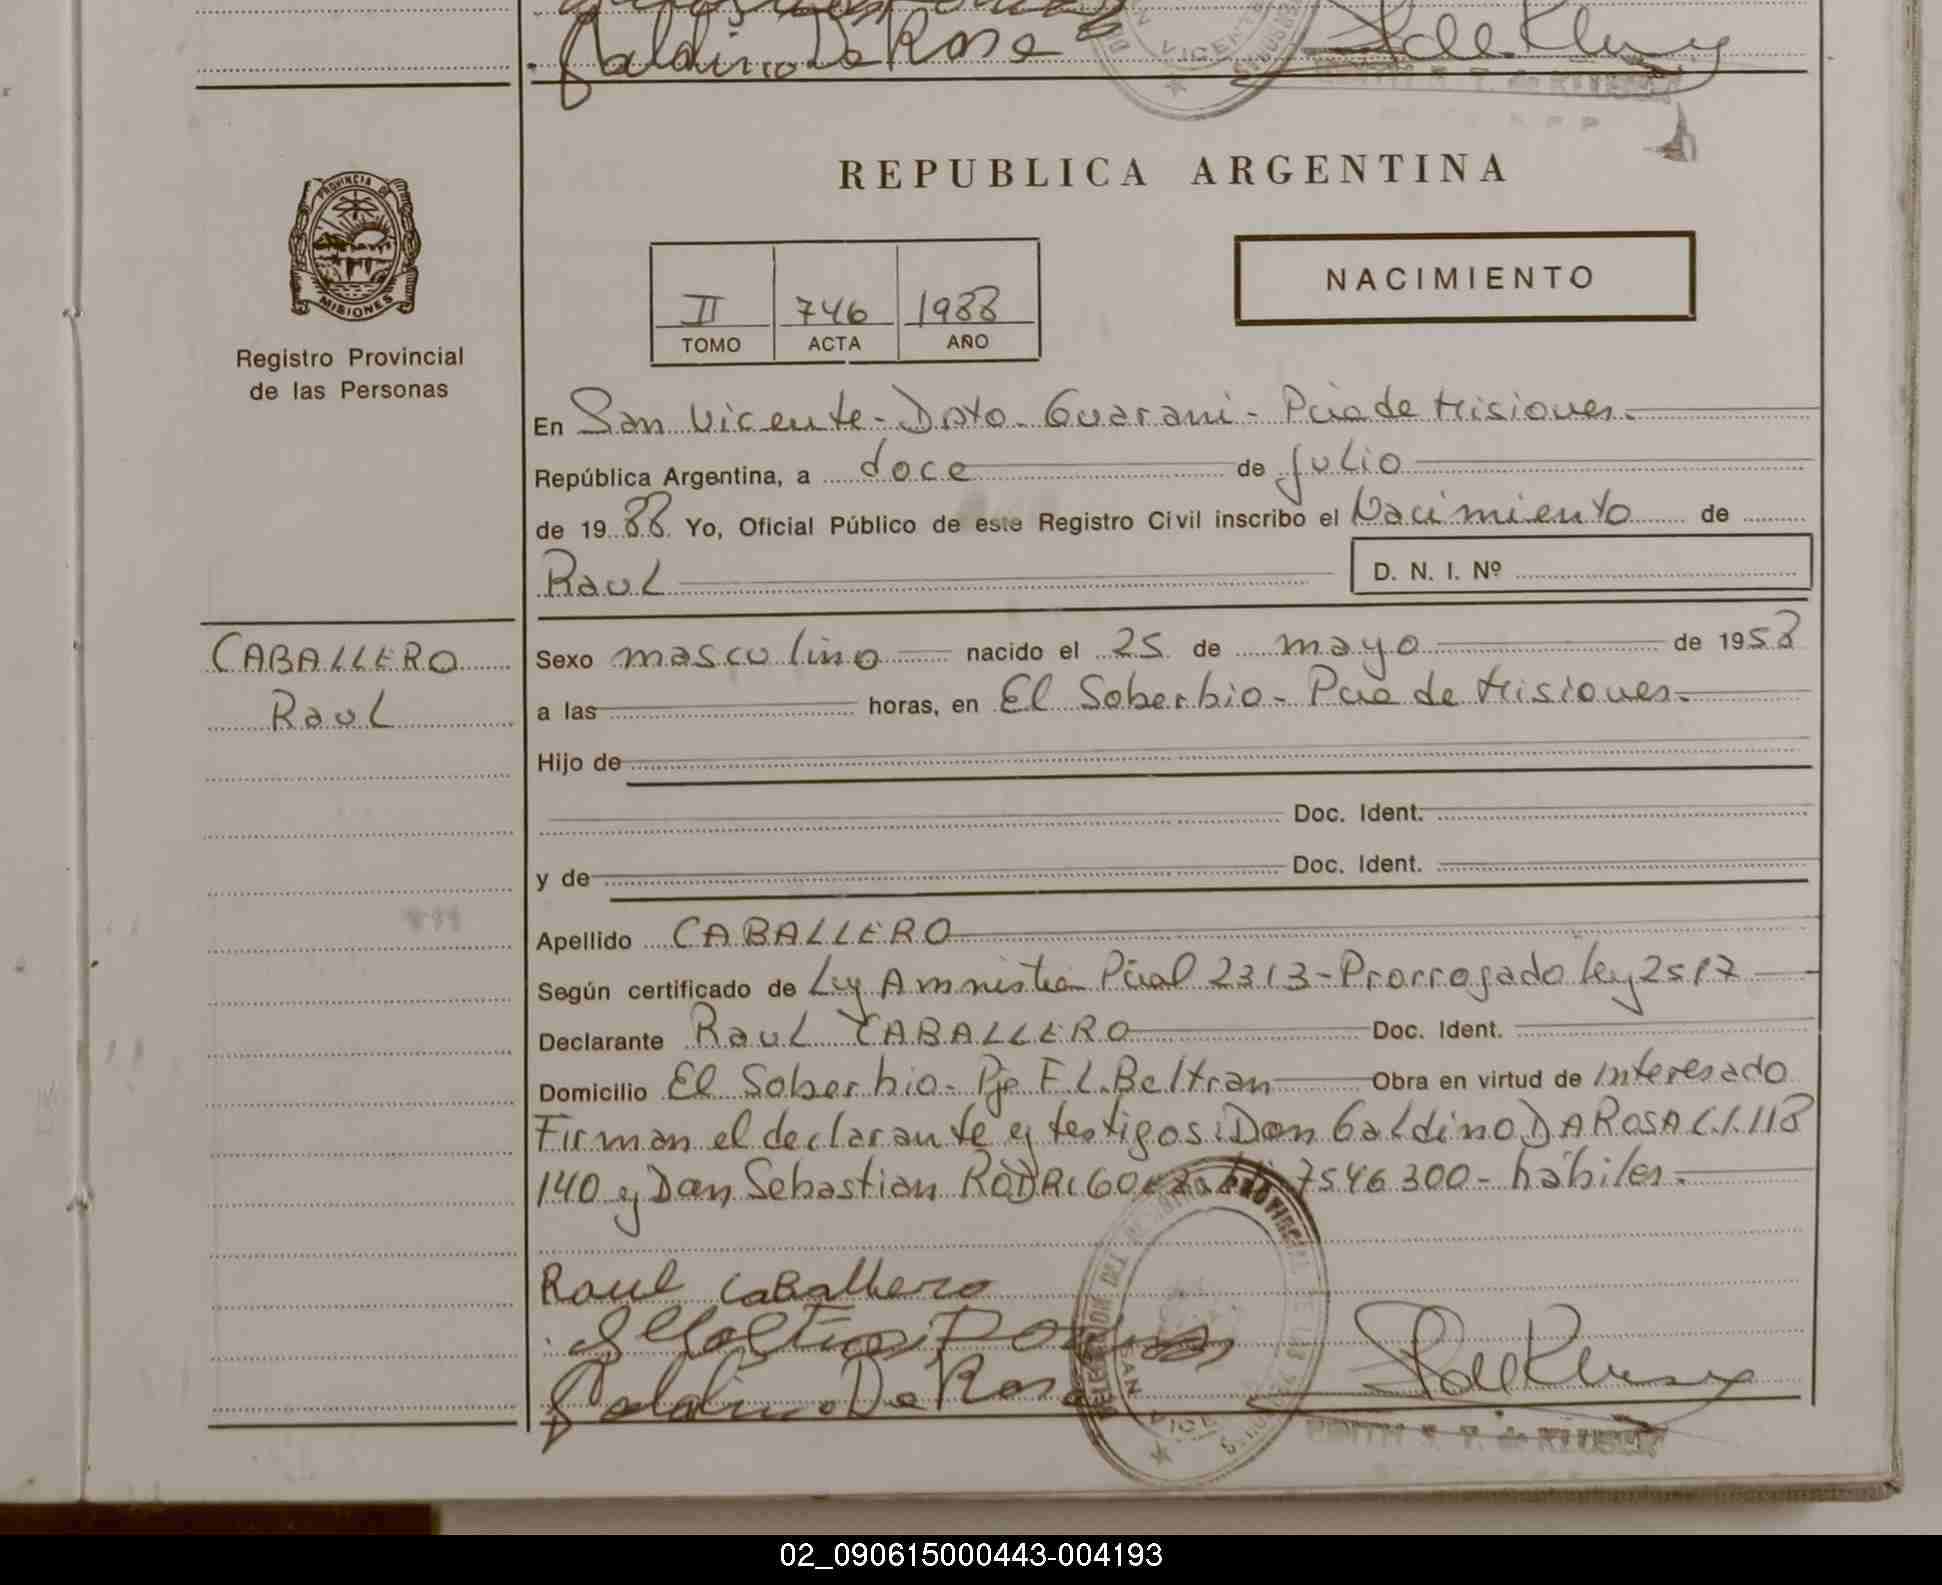 Galdino Da Rosa
VICENTE
REPUBLICA ARGENTINA
PROVINCIA DE
MISIONES
Registro Provincial
de las Personas
II 746 1988
TOMO ACTA AÑO
NACIMIENTO
En San Vicente - Dpto. Guarani - Pcia de Misiones.
República Argentina, a doce de Julio
de 1988 Yo, Oficial Público de este Registro Civil inscribo el Nacimiento de
Raul D. N. I. Nº
CABALLERO
Raul
Sexo masculino nacido el 25 de mayo de 1958
a las horas, en El Soberbio - Pcia de Misiones.
Hijo de
Doc. Ident.
y de Doc. Ident.
Apellido CABALLERO
Según certificado de Ley Amnistia Pcial 2313 - Prorrogado Ley 2517
Declarante Raul CABALLERO Doc. Ident.
Domicilio El Soberbio - Pje F.L. Beltran Obra en virtud de Interesado
Firman el declarante y testigos: Don Galdino DA ROSA C.I. 118
140 y Don Sebastian 7546300 - hábiles.
Raul Caballero
Galdino Da Rosa
SAN
02_090615000443-004193